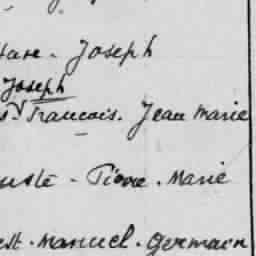 Joseph
Joseph
François. Jean Marie
Pierre. Marie
Manuel. Germain